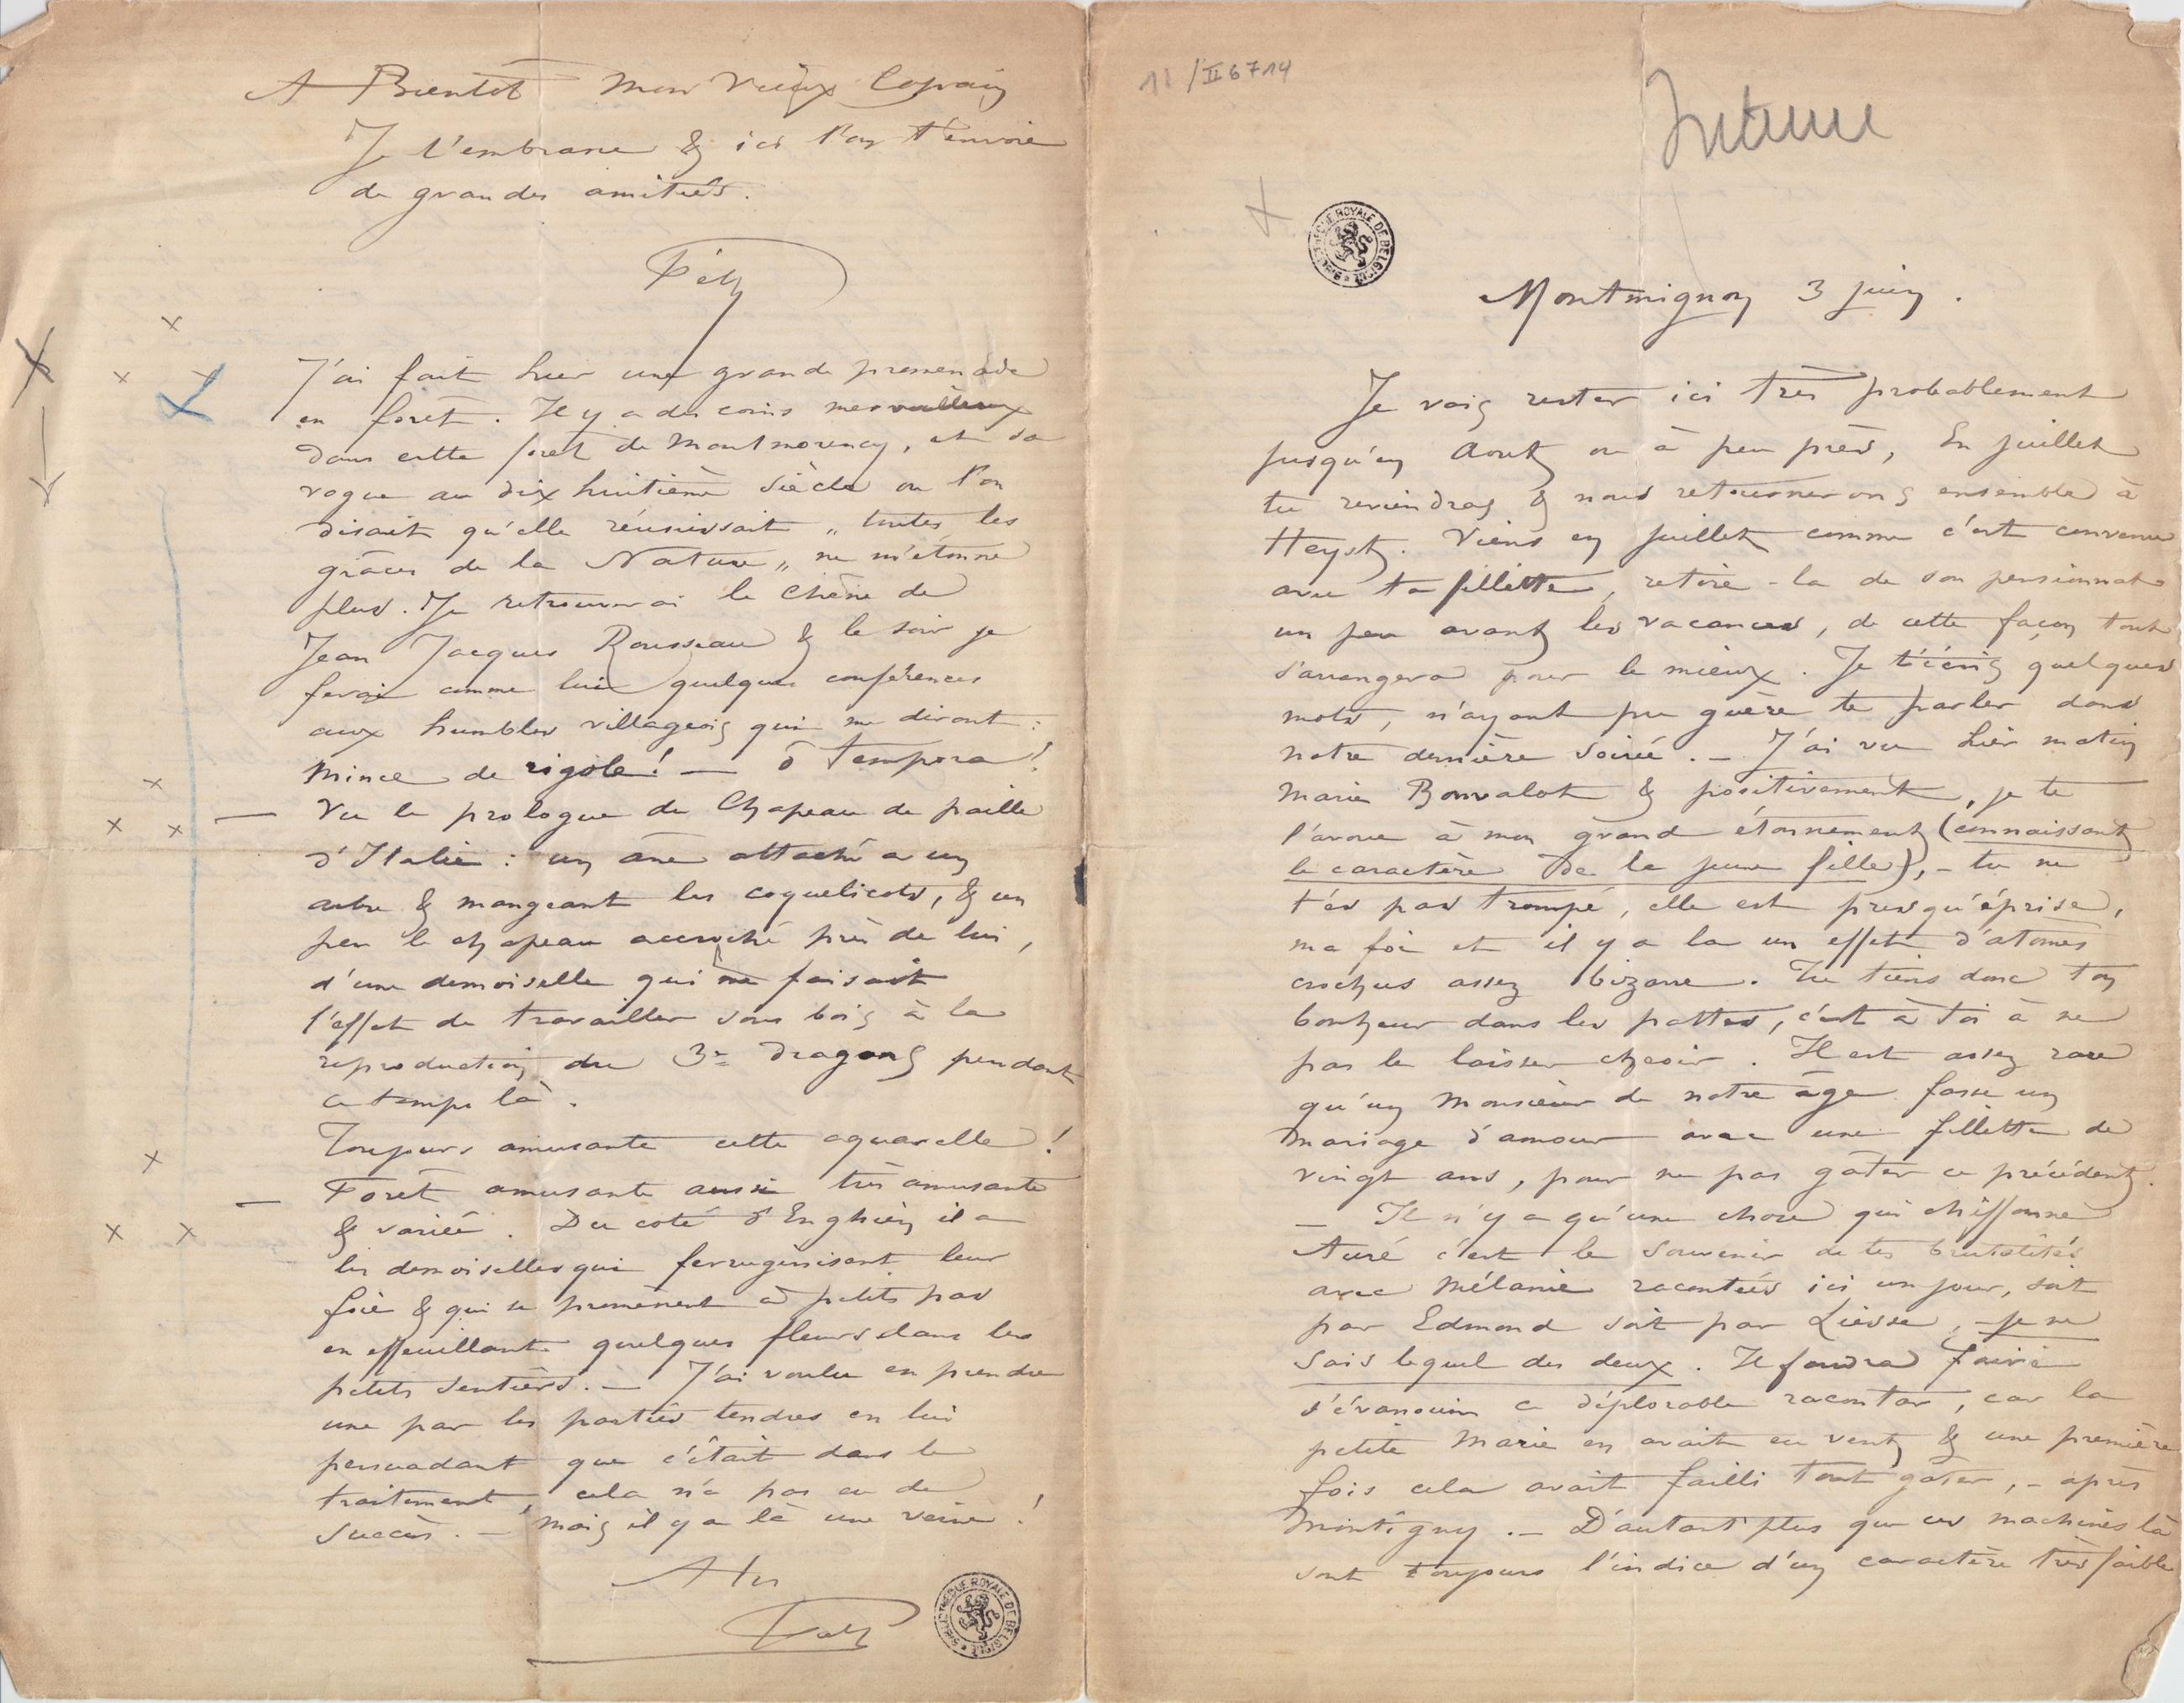 11/II 6714
Intime
BIBLIOTHEQUE ROYALE DE BELGIQUE
Montmignon 3 juin.
Je vais rester ici très probablement
jusqu'en Aout ou à peu près, En juillet
tu reviendras & nous retournerons ensemble à
Heyst. Viens en juillet comme c'est convenu
avec ta fillette, retire-la de son pensionnat
un peu avant les vacances, de cette façon tout
s'arrangera pour le mieux. Je t'écris quelques
mots, n'ayant pu guère te parler dans
notre dernière soirée. — J'ai vu hier matin
Marie Bonvalot & positivement, je te
l'avoue à mon grand étonnement (connaissant
le caractère de la jeune fille), - tu ne
t'es pas trompé, elle est presqu'éprise,
ma foi et il y a la un effet d'atomes
crochus assez bizarre. Tu tiens donc ton
bonheur dans les pattes, c'est à toi à ne
pas le laisser cheoir. Il est assez rare
qu'un Monsieur de notre âge fasse un
mariage d'amour avec une fillette de
vingt ans, pour ne pas gâter ce précédent.
— Il n'y a qu'une chose qui chiffonne
Auré c'est le souvenir de tes brutalités
avec Mélanie racontées ici un jour, soit
par Edmond soit par Liesse, - je ne
sais lequel des deux. Il faudra faire
s'évanouir ce déplorable racontar, car la
petite Marie en avait eu vent & une première
fois cela avait failli tout gâter, - après
Montigny. — D'autant plus que ces machines là
sont toujours l'indice d'un caractère très faible
A Bientot Mon Vieux Copain
Je t'embrasse & ici l'on t'envoie
de grandes amitiés.
Fély
J'ai fait hier une grande promenade
en forêt. Il y a des coins merveilleux
dans cette forêt de Montmorency, et sa
vogue au dix huitième siècle ou l'on
disait qu'elle réunissait „ toutes les
grâces de la Nature „ ne m'étonne
plus. Je retrouverai le Chêne de
Jean Jacques Rousseau & le soir je
ferai comme lui quelques conférences
aux humbles villageois qui me diront :
Mince de rigole! — ô Tempora!
— Vu le prologue du Chapeau de paille
d'Italie : un âne attaché a un
arbre & mangeant les coquelicots, & un
peu le chapeau accroché près de lui,
d'une demoiselle qui me faisait
l'effet de travailler sous bois à la
reproduction du 3e Dragons pendant
ce temps là.
Toujours amusante cette aquarelle!
— Forêt amusante aussi très amusante
& variée. Du coté d'Enghien il a
les demoiselles qui ferruginisent leur
foie & qui se promènent à petits pas
en effeuillant quelques fleurs dans les
petits sentiers. — J'ai voulu en prendre
une par les parties tendres en lui
persuadant que c'était dans le
traitement, cela n'a pas eu de
succès. — Mais il y a là une veine!
A toi
Fély
BIBLIOTHEQUE ROYALE DE BELGIQUE